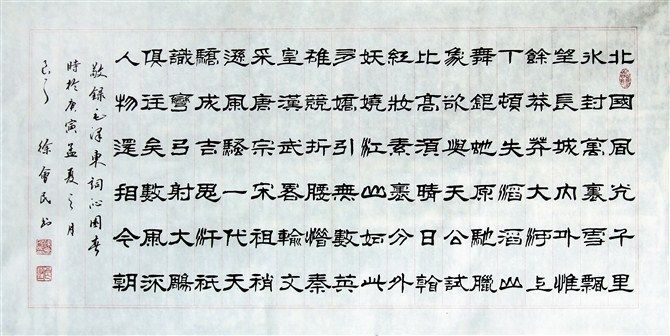 北國風光千里
冰封萬裏雪飄
望長城內外惟
餘莽莽大河上
下頓失滔滔山
舞銀蛇原馳臘
象欲與天公試
比高須晴日看
紅妝素裹分外
妖嬈江山如此
多嬌引無數英
雄競折腰惜秦
皇漢武略輸文
采唐宗宋祖稍
遜風騷一代天
驕成吉思汗祇
識彎弓射大鵰
俱往矣數風流
人物還相今朝
敬錄毛澤東詞沁園春
時於庚寅孟夏之月
徐會民書